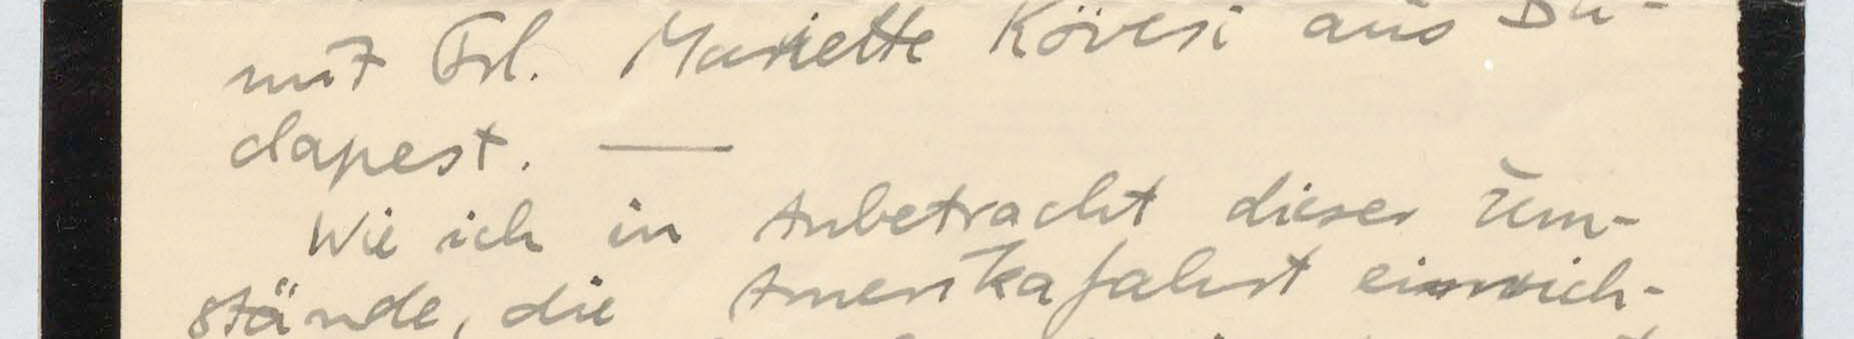 mit Frl. Mariette Kövesi aus Bu-
dapest. —
Wie ich in Anbetracht dieser Um-
stände, die Amerikafahrt einrich-